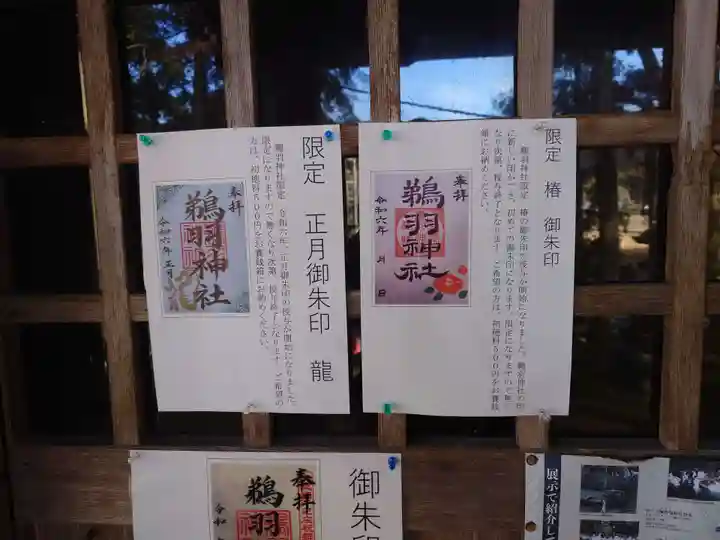 限定　正月御朱印　龍
鵜羽神社限定　令和六年　正月御朱印の授与が開始になりました。
限定になりますので無くなり次第、授与終了となります。ご希望の
方は、初穂料５００円をお賽銭箱にお納めください。
奉拝
鵜羽神社
令和六年　正月
限定　椿　御朱印
鵜羽神社限定　椿の御朱印の授与が開始になりました。
なり次第、授与終了となります。ご希望の方は、初穂料５００円をお賽銭
箱にお納めください。
奉拝
鵜羽神社
令和六年　月　日
御朱印
奉拝
鵜羽
令和
展示で紹介し